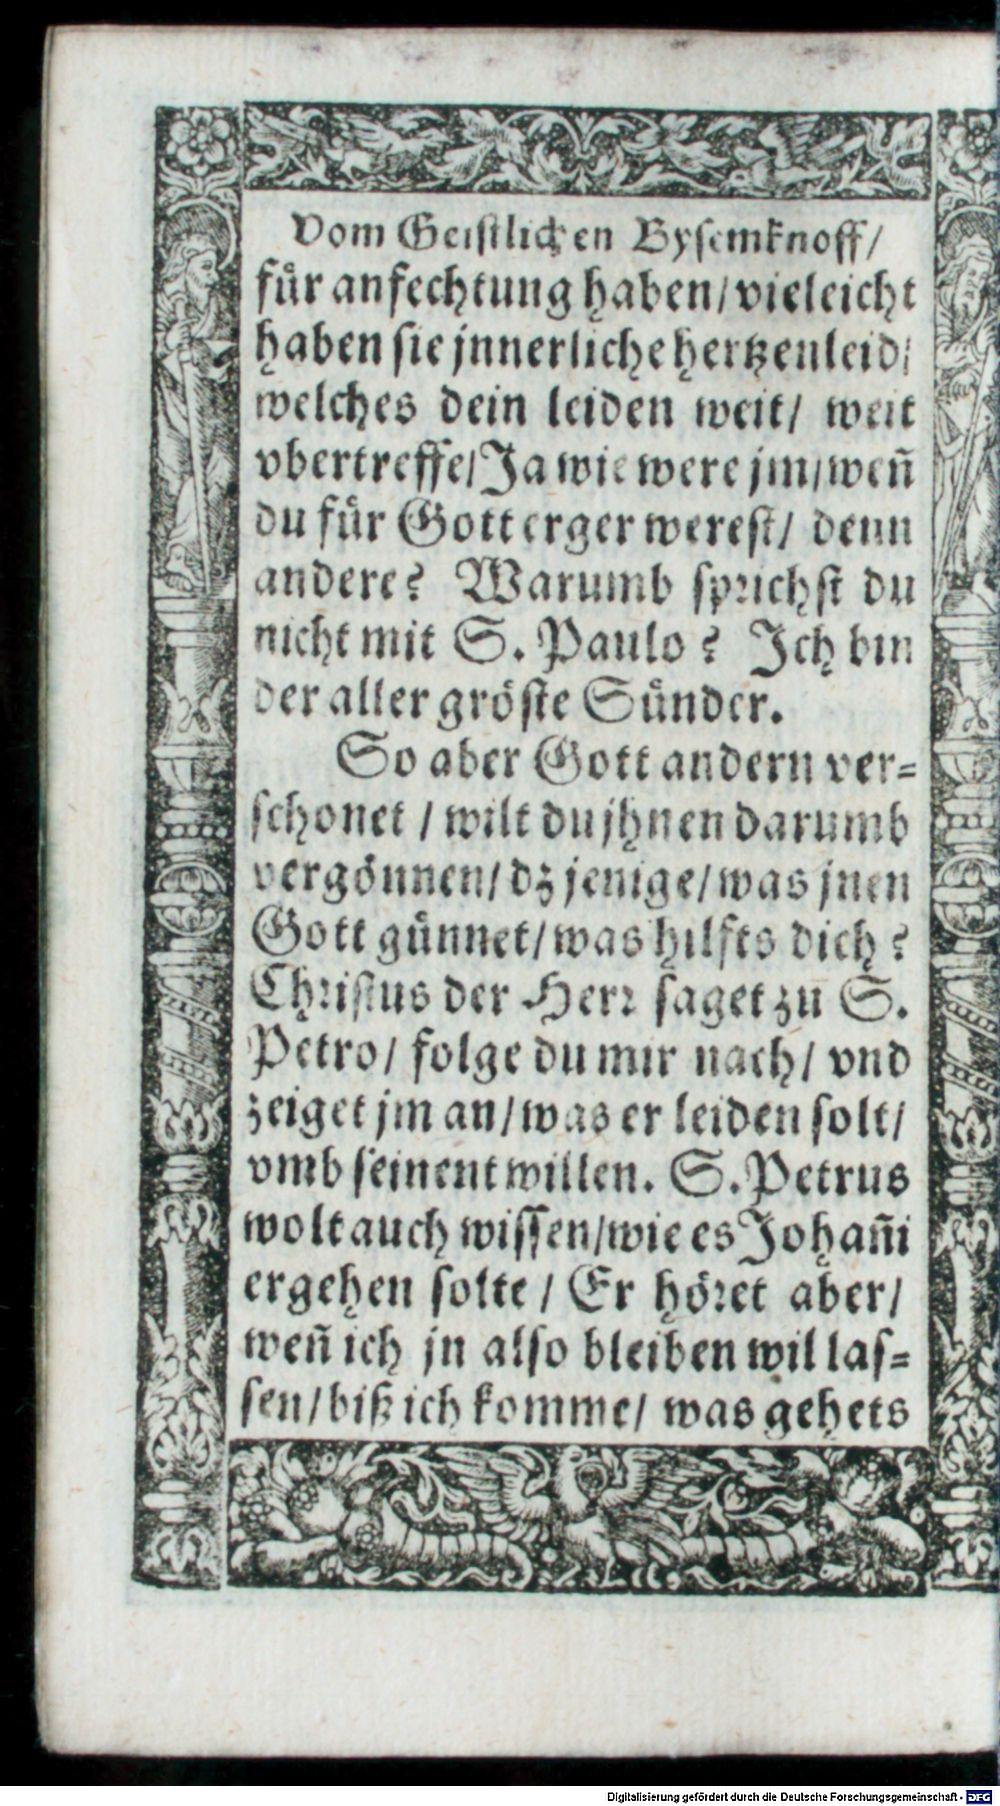 Vom Geistlichen Bysemknoff/
fuͤr anfechtung haben/vieleicht
haben sie jnnerliche hertzenleid/
welches dein leiden weit/ weit
vbertreffe/Ja wie were jm/weñ
du fuͤr Gott erger werest/ denn
andere? Warumb sprichst du
nicht mit S. Paulo? Ich bin
der aller groͤste Suͤnder.
So aber Gott andern ver=
schonet / wilt du jhnen darumb
vergoͤnnen/ dz jenige/was jnen
Gott guͤnnet/was hilfts dich?
Christus der Herr saget zu S.
Petro/ folge du mir nach/ vnd
zeiget jm an/was er leiden solt/
vmb seinent willen. S. Petrus
wolt auch wissen/wie es Johañi
ergehen solte / Er hoͤret aber/
weñ ich jn also bleiben wil las=
sen/biß ich komme/ was gehets
Digitalisierung gefördert durch die Deutsche Forschungsgemeinschaft - DFG